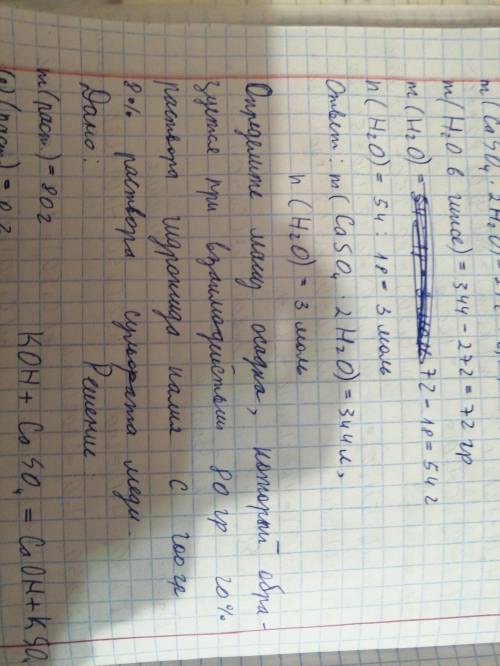 m (CaSO₄ · 2H₂O) =
m (H₂O в гипсе) = 344 - 272 = 72 гр
m (H₂O) = 72 - 18 = 54 г
n (H₂O) = 54 : 18 = 3 моль
Ответ: m (CaSO₄ · 2H₂O) = 344 г,
n (H₂O) = 3 моль
Определите массу осадка, который обра-
зуется при взаимодействии 80 гр 20%
раствора гидроксида калия с 200 гр
8% раствора сульфата меди.
Дано: Решение:
m (раст.) = 80 г KOH + CuSO₄ = CuOH + KSO₄
(раст.) = 0,2